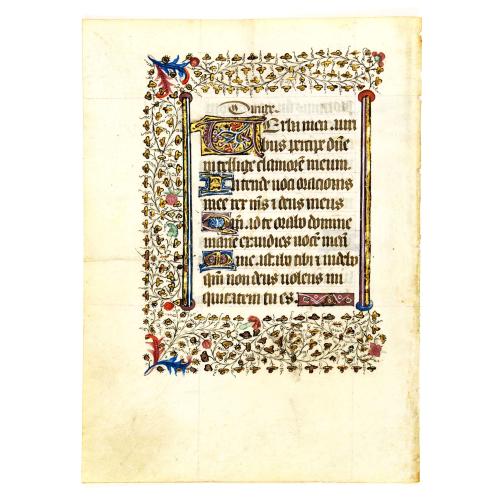 Dirige
Verba mea auri
bus percipe dñe
intellige clamorē meum
Intende voci orationis
mee rex mñs ⁊ deus meus
Qm̃ ad te orabo domine
mane exaudies vocē meā
Mane astabo tibi ⁊ videbo
qm̃ non deus volens ini
quitatem tu es